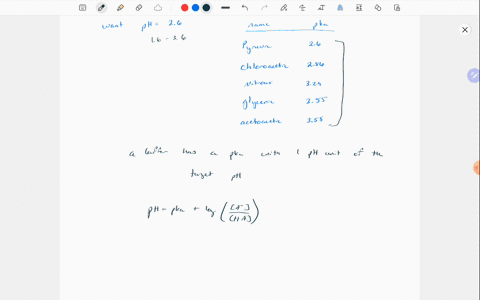 want pH = 2.6
1.6 - 3.6
name pka
Pyruvic 2.6
chloroacetic 2.86
nitrous 3.29
glyceric 3.55
acetoacetic 3.58
a buffer has a pka with 1 pH unit of the
target pH
pH = pka + log ([A⁻]/[HA])